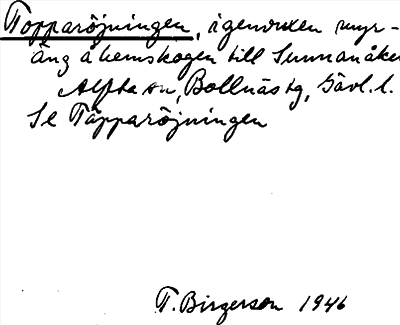 Topparöjningen, igenvuxen myr-
äng å hemskogen till Sunnanåker
Alfta sn, Bollnäs tg, Gävl. l.
Se Täpparöjningen
T. Birgerson 1946